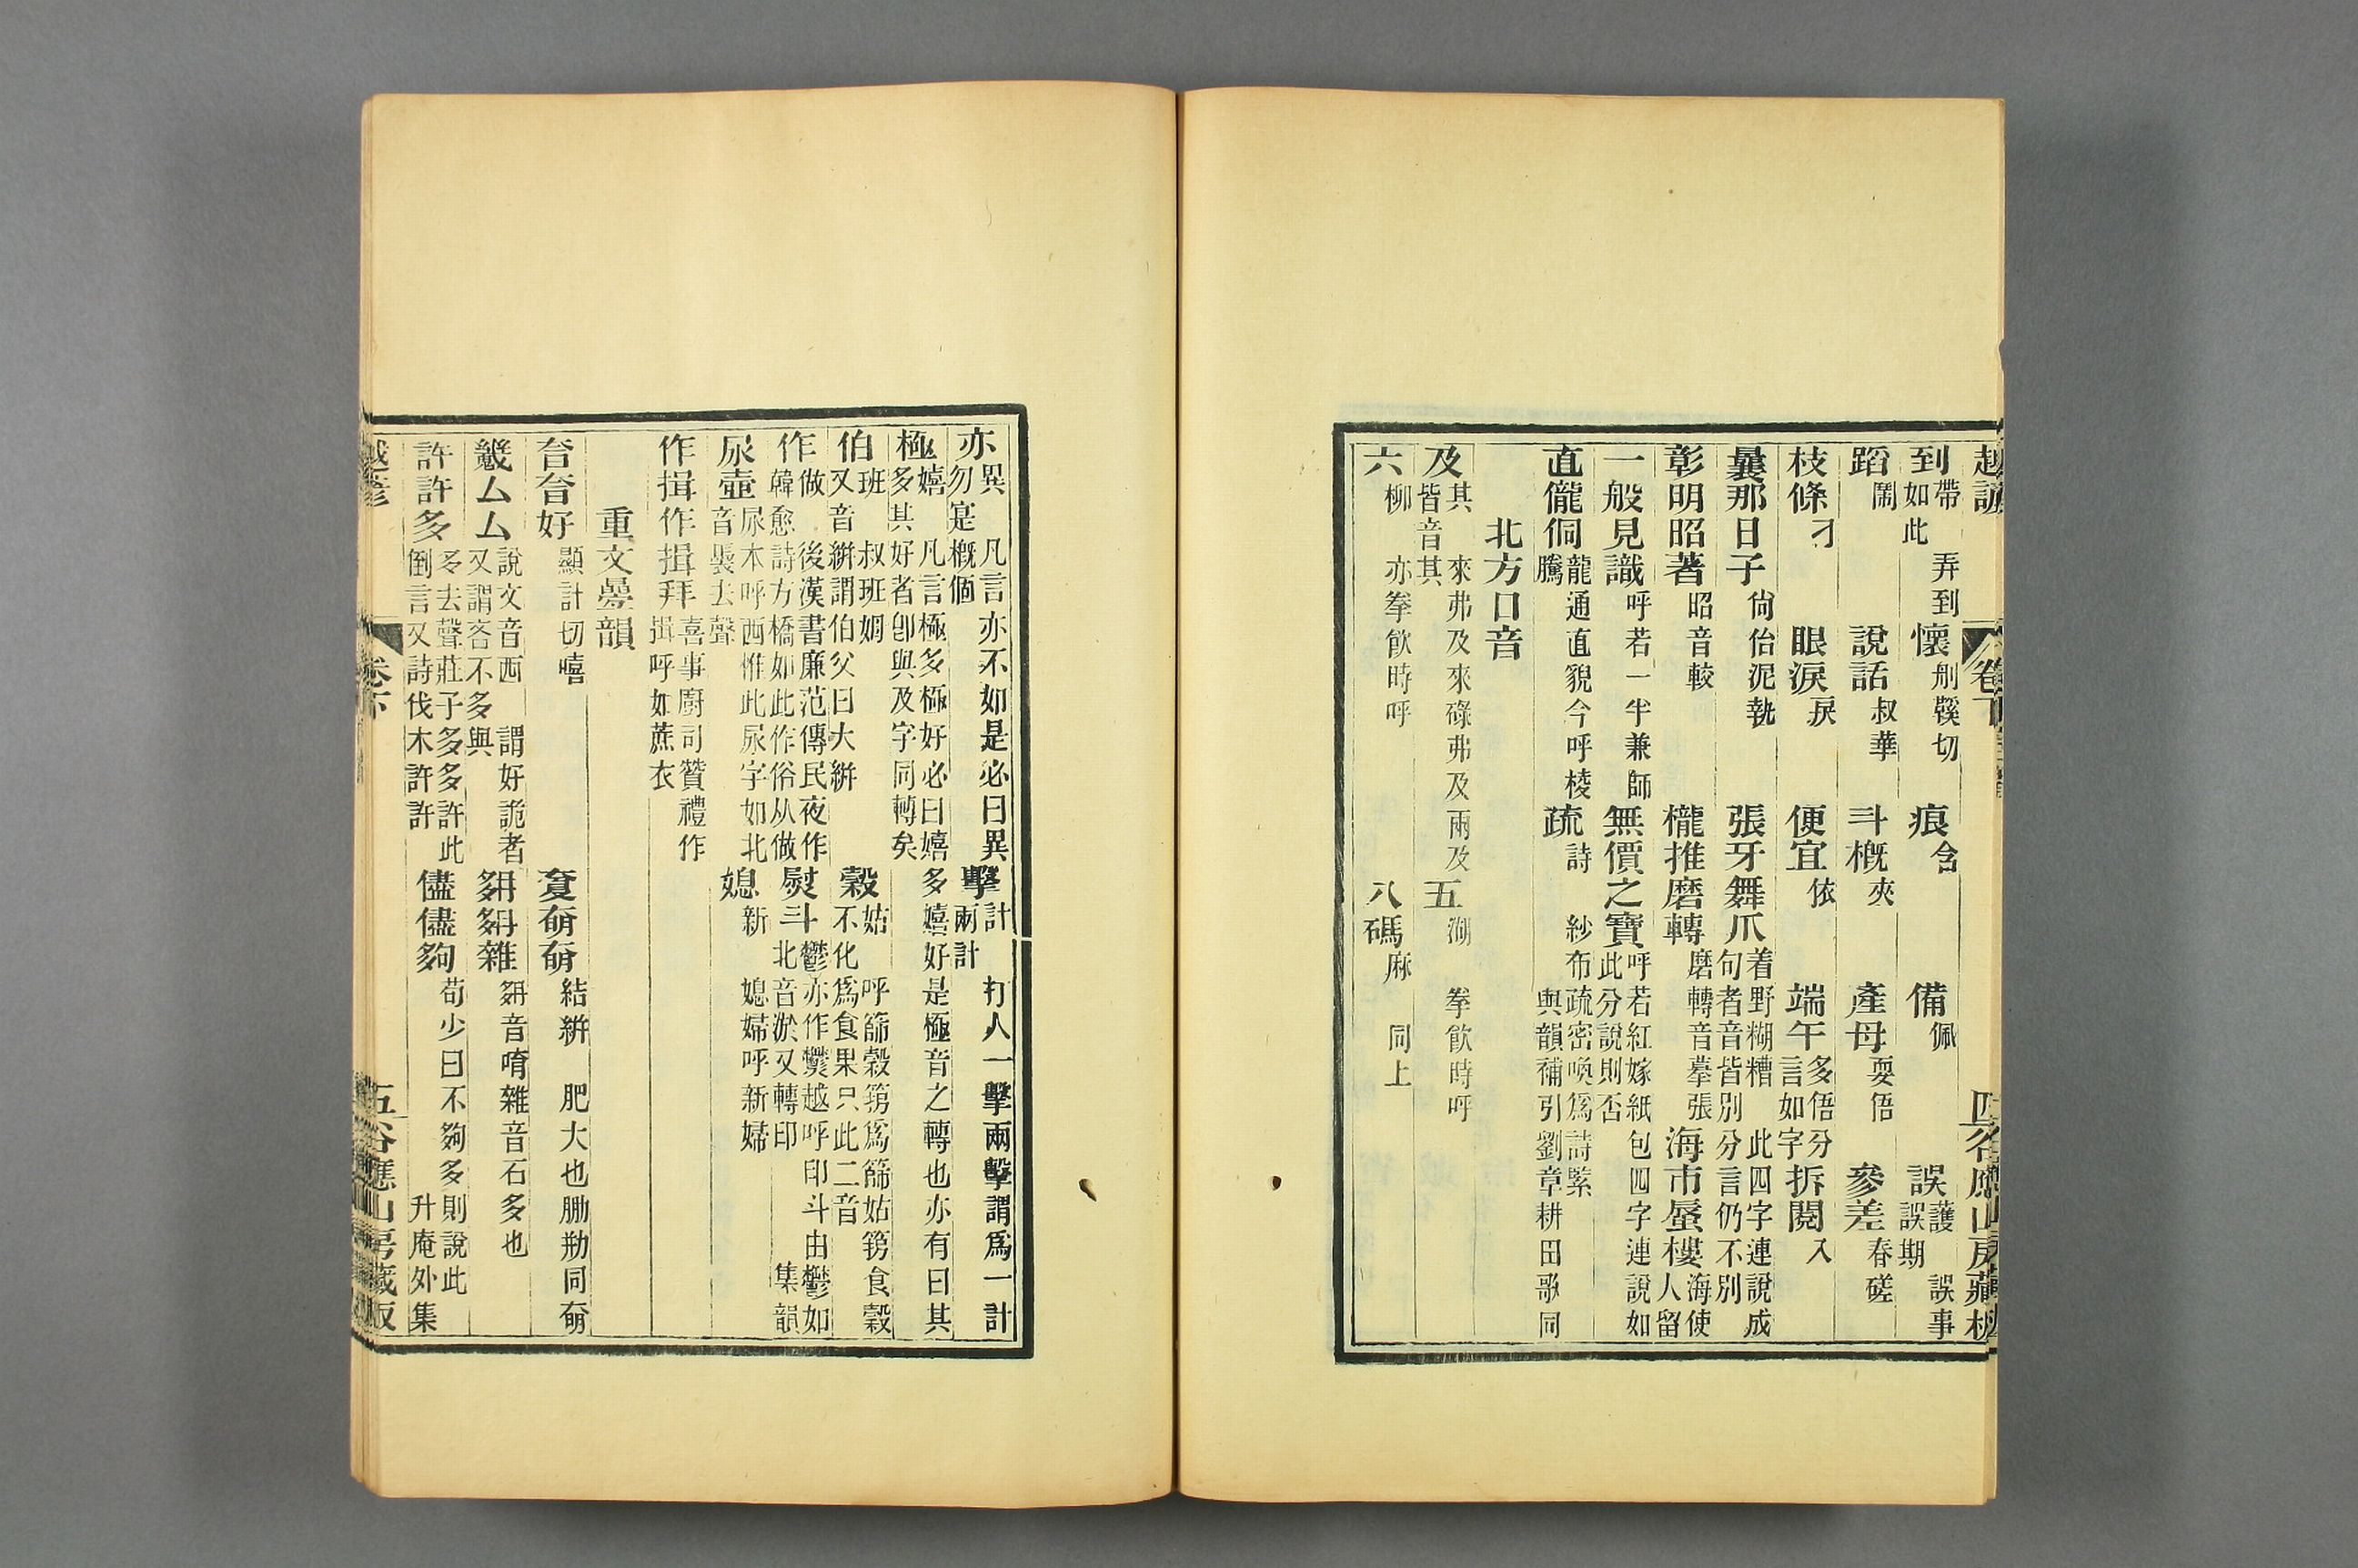 越諺 卷下 四 谷應山房藏板
到帶如此 弄到 懷剻豀切 痕含 備佩 誤護誤期 誤事
蹈鬧 說話叔華 斗概夾 產母耍俉 參差春磋
枝條刁 眼淚戾 便宜依 端午多俉分言如字 拆閱入
曩那日子倘佁泥執 張牙舞爪着野糊糟此四字連說成句者音皆別分言仍不別
彰明昭著昭音較 櫳推磨轉磨轉音摹張 海市蜃樓海使人留
一般見識呼若一半兼師 無價之寶呼若紅嫁紙包四字連說如此分說則否
直儱侗龍通直貌今呼棱騰 疏詩 紗布疏密喚爲詩繄與韻補引劉章耕田歌同
北方口音
及其皆音其 來弗及來碌弗及兩及 五湖 拳飲時呼
六柳 亦拳飲時呼 八碼麻 同上
亦異勿寔概個 凡言亦不如是必曰異 擊計兩計 打人一擊兩擊謂爲一計
極嬉多其好者卽與及字同轉矣 凡言極多極好必曰嬉多嬉好是極音之轉也亦有曰其
伯班又音絣謂伯父曰大絣 叔班㛹 穀姑不化爲食果只此二音 呼篩穀箉爲篩姑箉食穀
作做韓愈詩方橋如此作俗从做 後漢書廉范傳民夜作 熨斗鬱亦作爩越呼印斗由鬱如北音淤又轉印 集韻
尿壺尿本呼西惟此尿字如北音㲡去聲 媳新 媳婦呼新婦
作揖作揖拜喜事廚司贊禮作揖呼如蔗衣
重文疊韻
㕦㕦好顯計切嘻 奯奛奛結絣 肥大也肕劷同奛
䶓厶厶說文音西 謂好詭者又謂吝不多與 䎳䎳雜䎳音唷雜音石多也
許許多多去聲莊子多多許此倒言又詩伐木許許 儘儘夠苟少曰不夠多則說此 升庵外集
越諺 卷下 五 谷應山房藏版